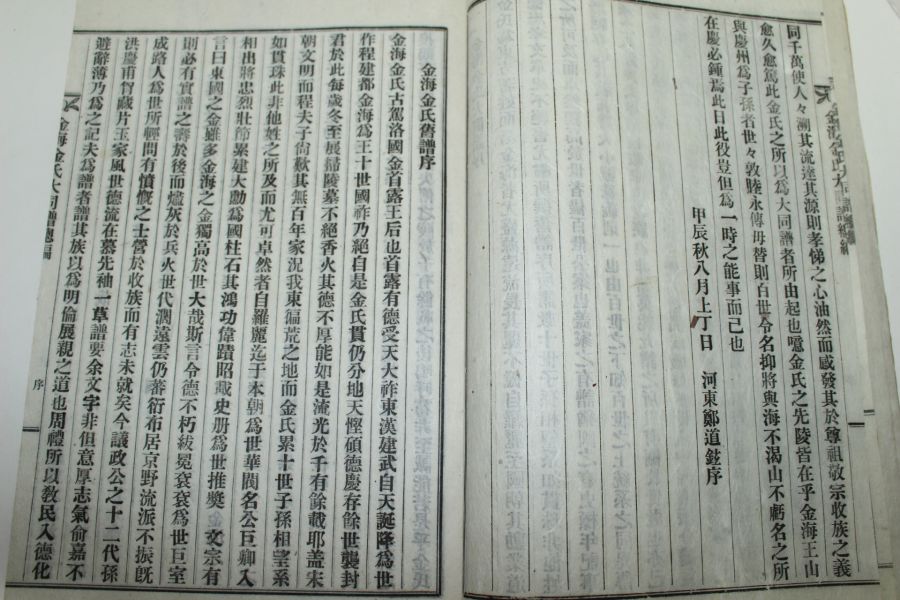 同千萬使人々溯其流達其源則孝悌之心油然而感發其於尊祖敬宗收族之義
愈久愈篤此金氏之所以為大同譜者所由起也噫金氏之先陵皆在乎金海王山
與慶州為子孫者世々敦睦永傳毋替則百世令名抑將與海不渴山不虧名之所
在慶必鍾焉此日此役豈但為一時之能事而已也
甲辰秋八月上丁日 河東鄭道鉉序
金海金氏大同譜總編
金海金氏舊譜序
金海金氏古駕洛國金首露王后也首露有德受天大祚東漢建武自天誕降為世
作程建都金海為王十世國祚乃絕自是金氏貫仍分地天慳碩德慶存餘世襲封
君於此每歲冬至展掃陵墓不絕香火其德不厚能如是流光於千有餘載耶盖宋
朝文明而程夫子尙歎其無百年家況我東徧荒之地而金氏累十世子孫相望系
如貫珠此非他姓之所及而尤可卓然者自羅麗迄于本朝為世華閥名公巨卿入
相出將忠烈壯節累建大勳為國柱石其鴻功偉蹟昭載史册為世推獎金文宗有
言曰東國之金雖多金海之金獨高於世大哉斯言令德不朽紱冕袞袞為世巨室
則必有實譜之壽於後而燼灰於兵火世代濶遠雲仍蕃衍布居京野流派不振旣
成路人為世所輕間有憤慨之士營於收族而有志未就矣今議政公之十二代孫
洪慶甫嘗藏片玉家風世德流在慕先袖一草譜要余文字非但意厚志氣俞嘉不
避辭薄乃為之記夫為譜者譜其族以為明倫展親之道也周禮所以敎民入德化
金海金氏大同譜總編 序